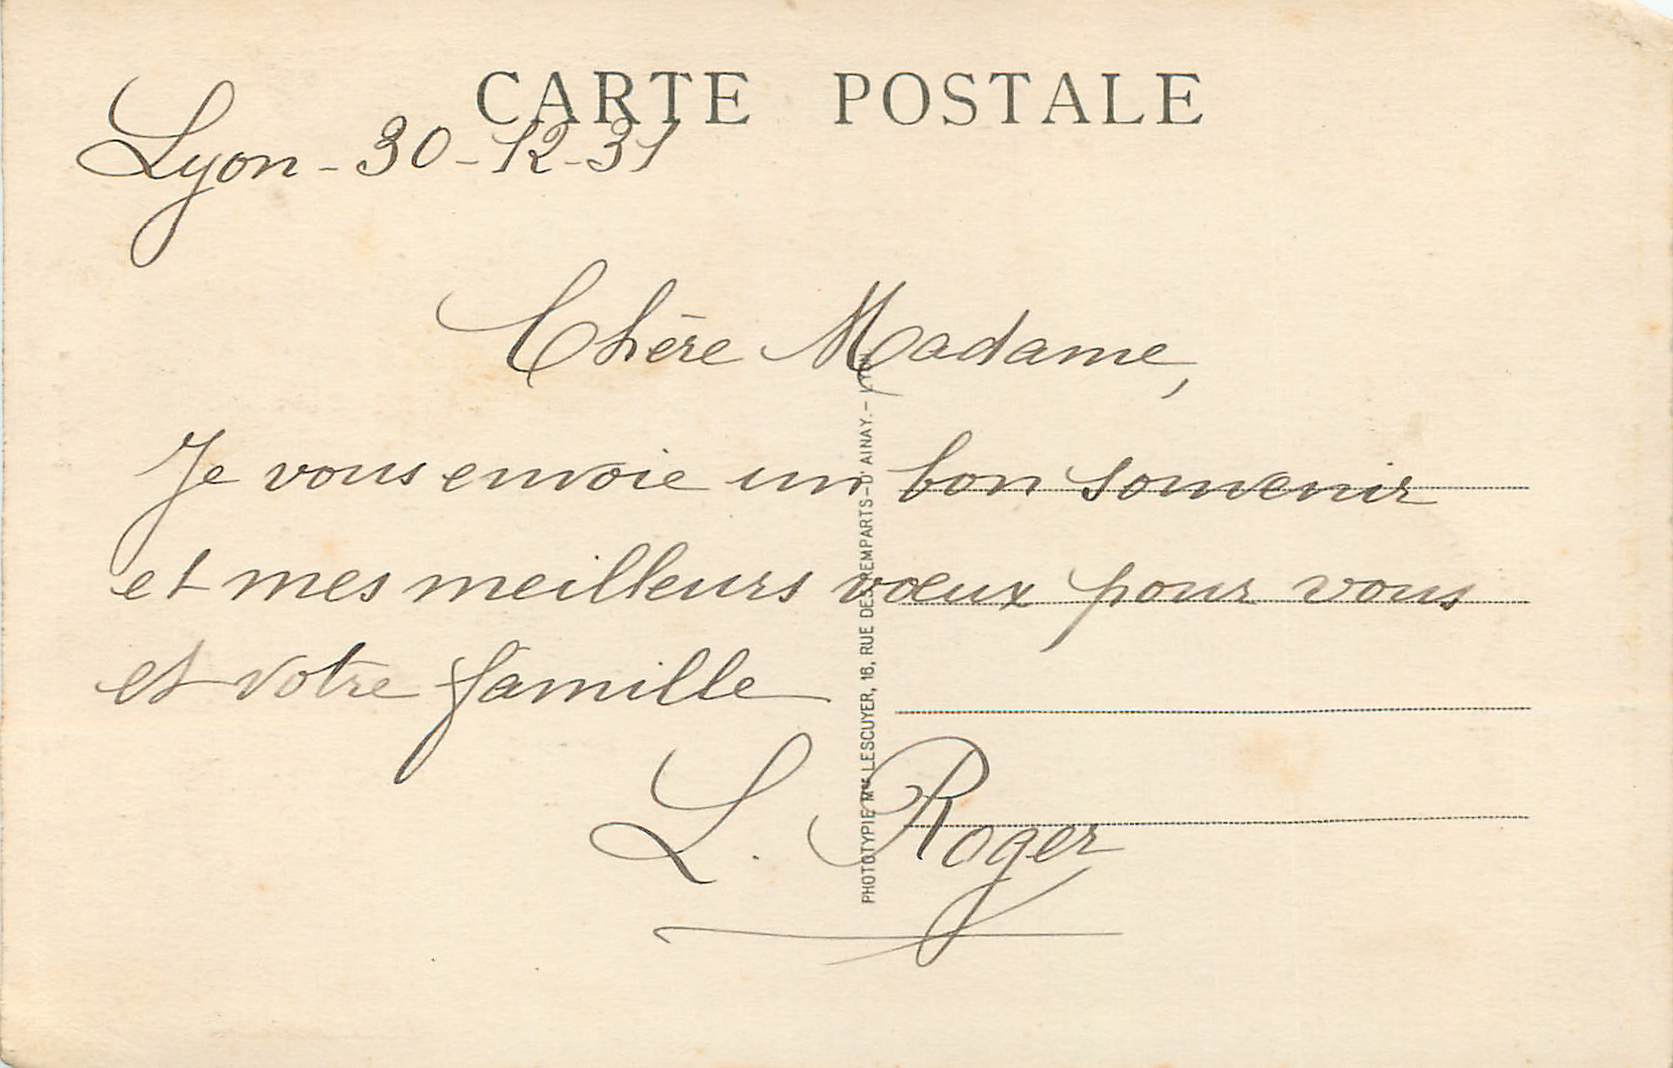 CARTE POSTALE
Lyon - 30 - 12 - 31
Chère Madame,
Je vous envoie un bon souvenir
et mes meilleurs vœux pour vous
et votre famille
L. Roger
PHOTOTYPIE Mme LESCUYER, 16, RUE DES REMPARTS-D'AINAY. - LYON